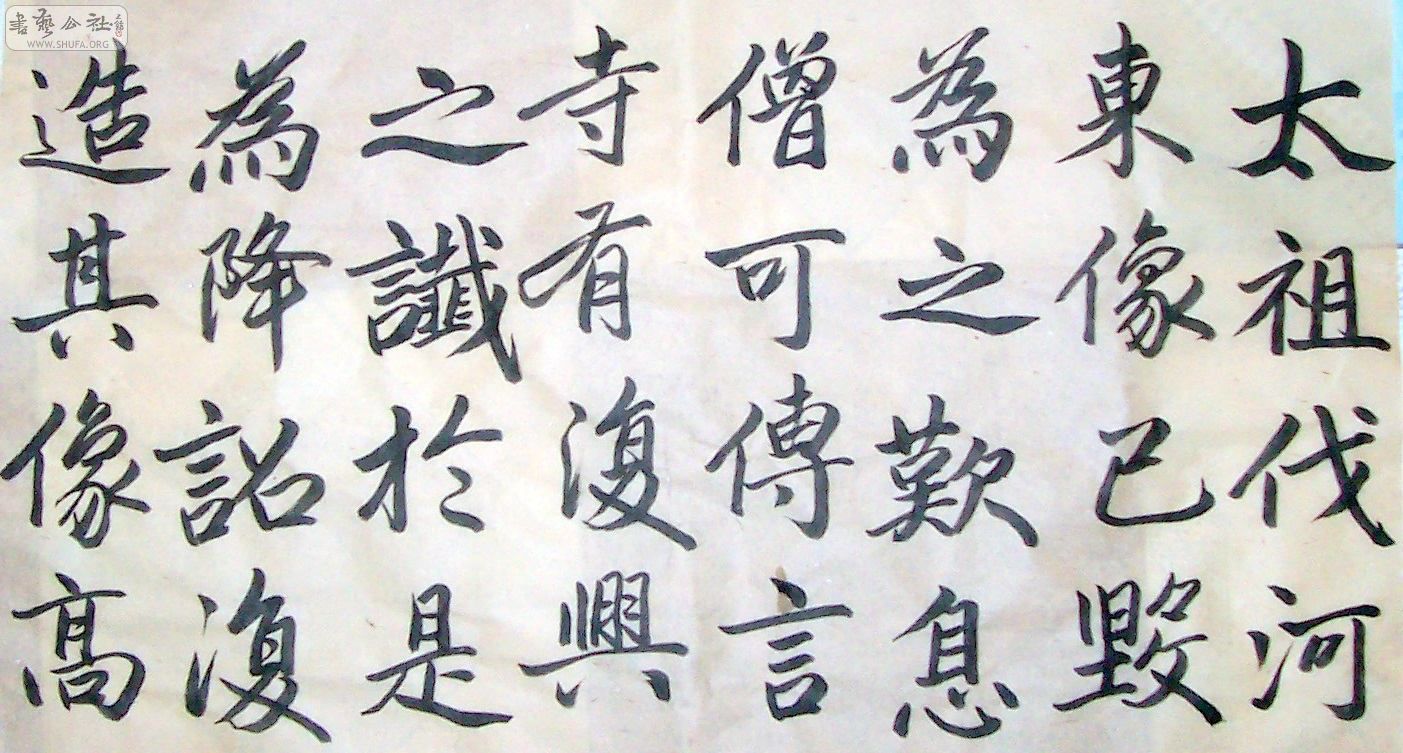 書藝公社
WWW.SHUFA.ORG
太祖伐河
東像已毀
為之歎息
僧可傳言
寺有復興
之讖於是
為降詔復
造其像高